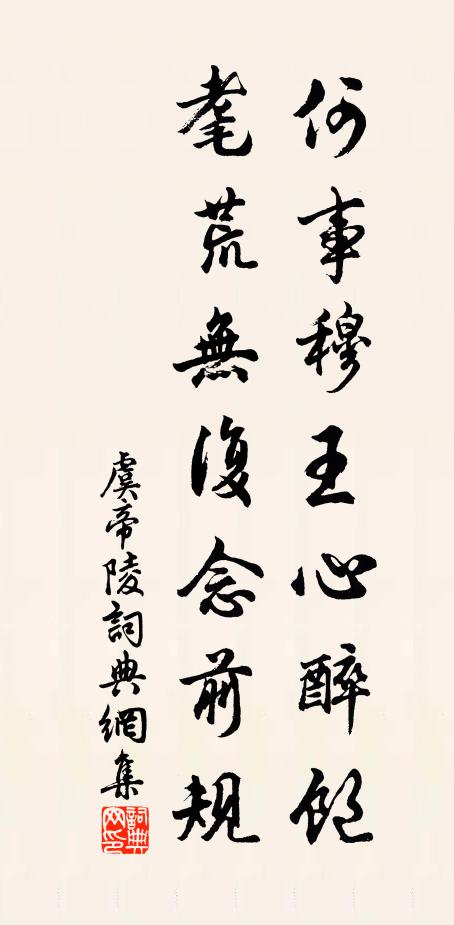 何事穆王心醉飽
耄荒無復念前規
虞帝陵詞典網集
詞典网印